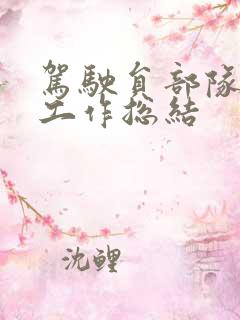 駕駛員部隊
工作总結
沈鲤